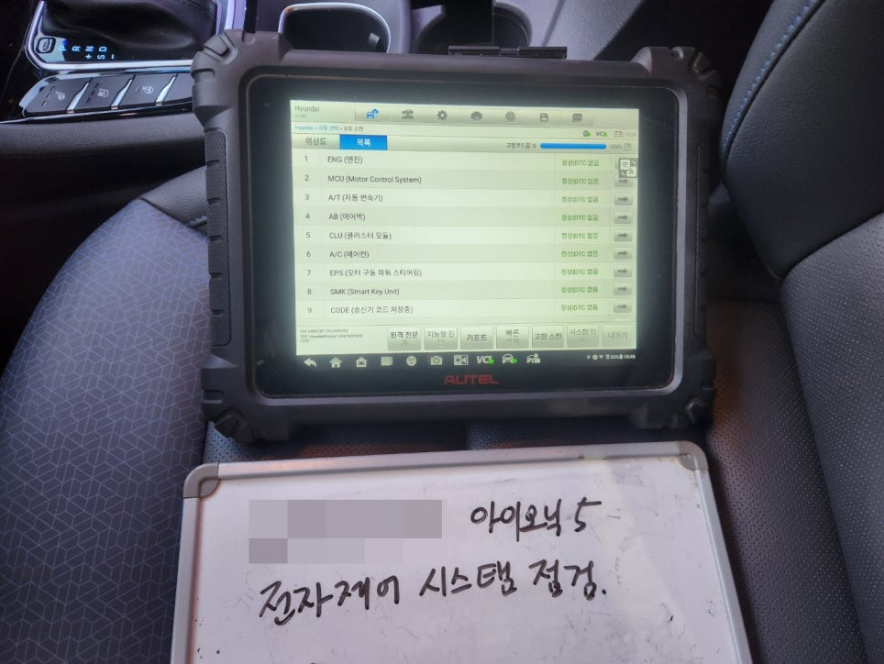 P R N D
+ S -
Hyundai
VCI
목록
100%
1 ENG (엔진) 정상|DTC 없음
2 MCU (Motor Control System) 정상|DTC 없음
3 A/T (자동 변속기) 정상|DTC 없음
4 AB (에어백) 정상|DTC 없음
5 CLU (클러스터 모듈) 정상|DTC 없음
6 A/C (에어컨) 정상|DTC 없음
7 EPS (모터 구동 파워 스티어링) 정상|DTC 없음
8 SMK (Smart Key Unit) 정상|DTC 없음
9 CODE (송신기 코드 저장중) 정상|DTC 없음
원격 전문 지능형 진 리포트 빠른 고장 스캔 나가기
VCI
AUTEL
아이오닉 5
전자제어 시스템 점검.